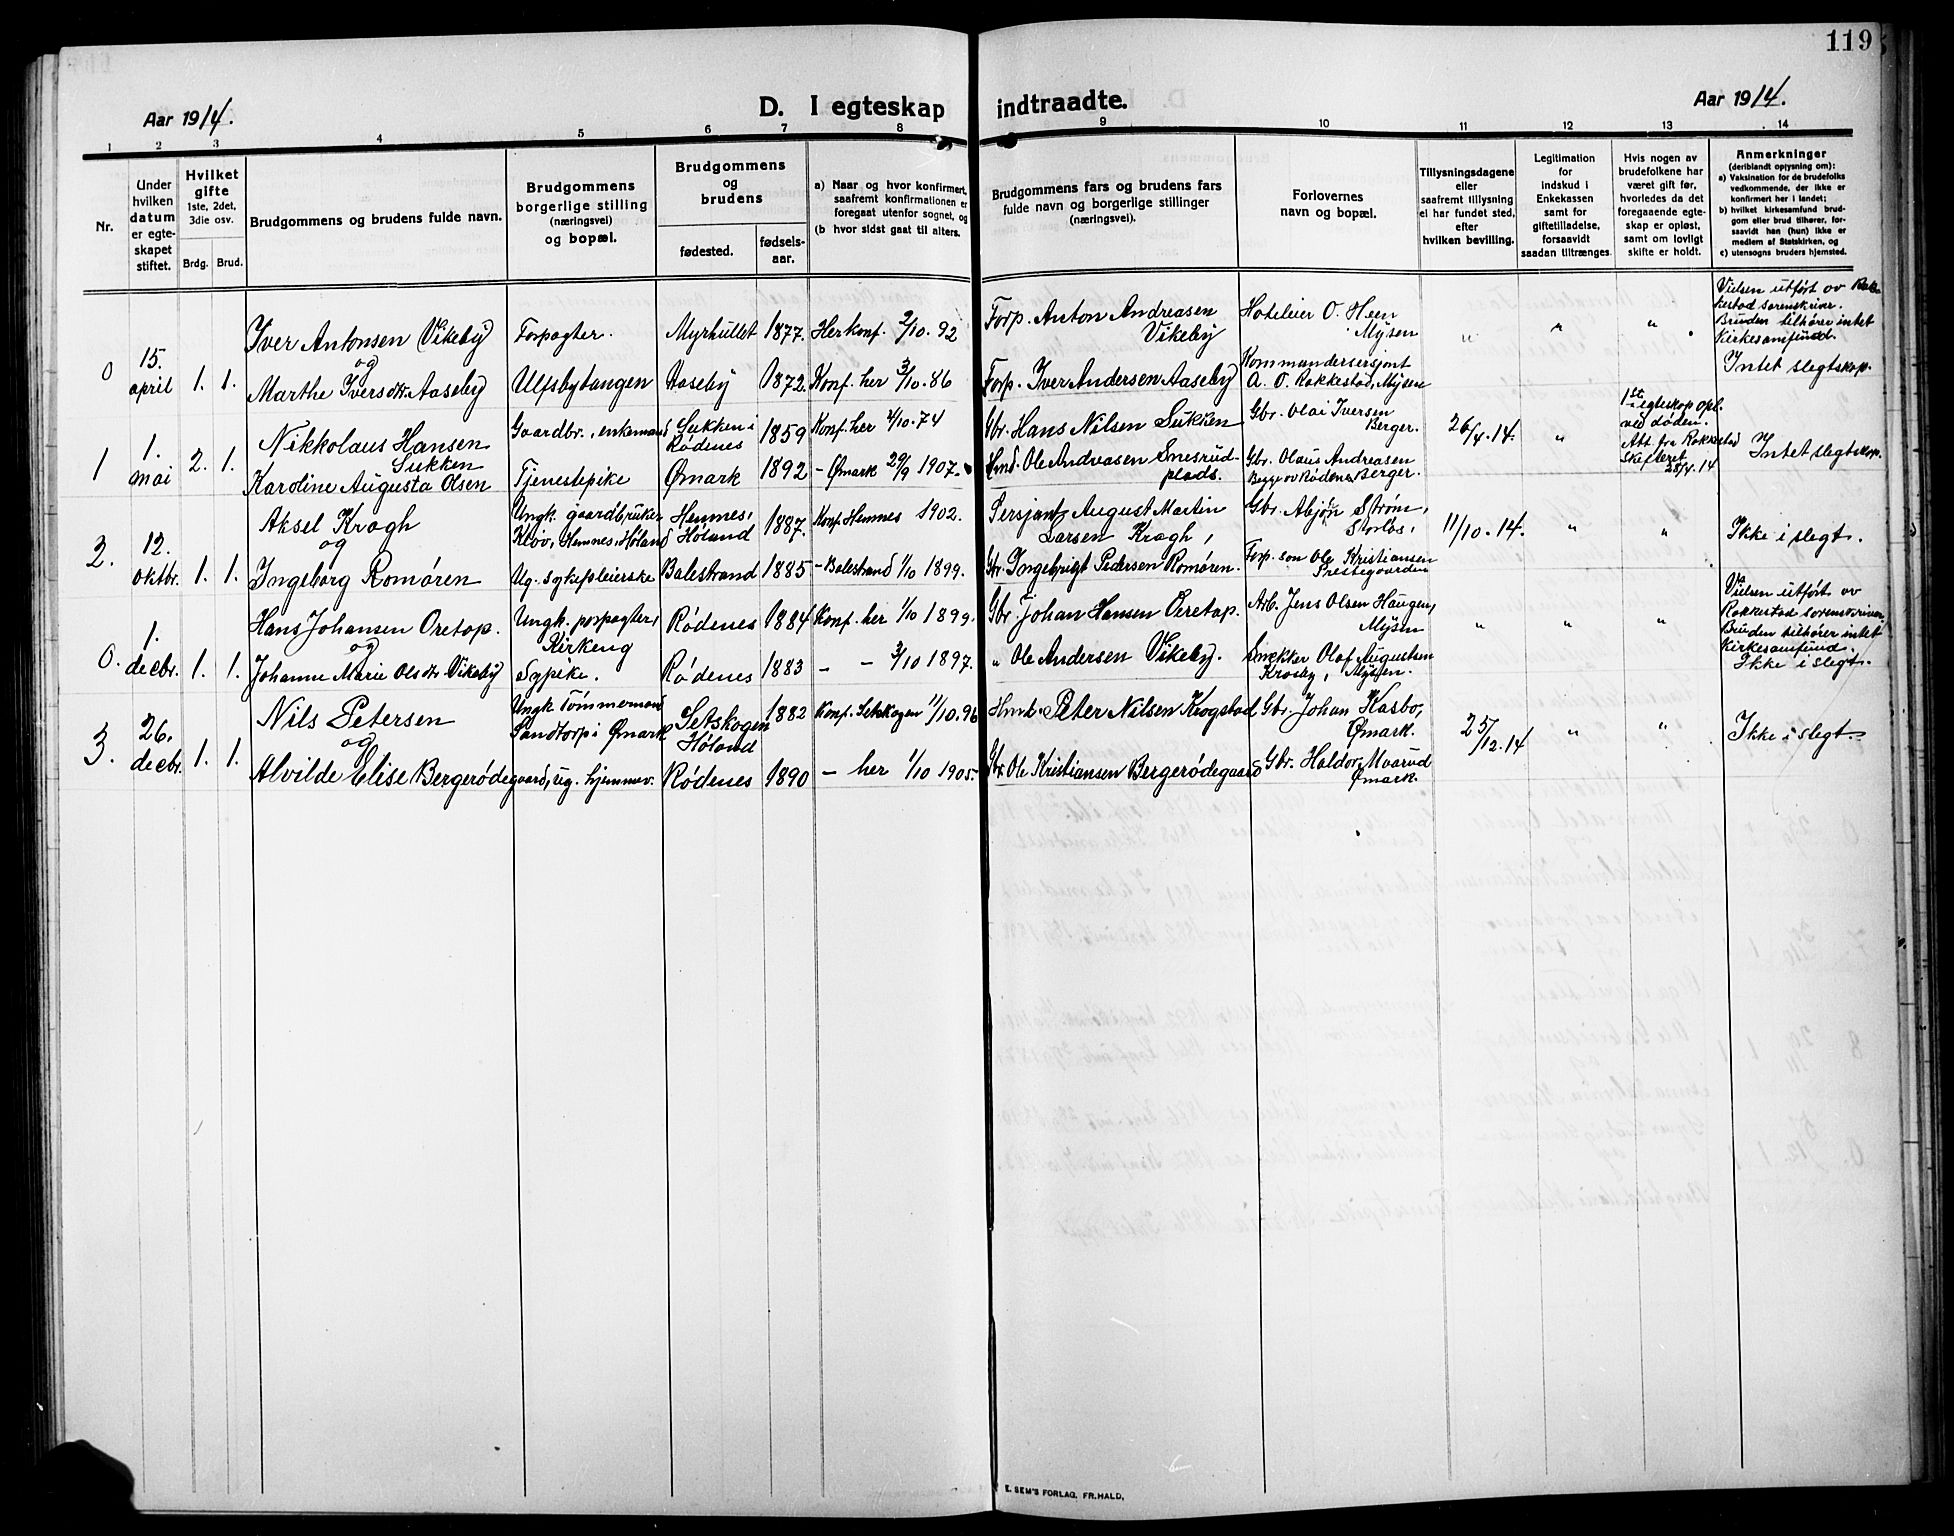 119
Aar 1914.
D. I egteskap indtraadte.
Aar 1914.
1 2 3 4 5 6 7 8 9 10 11 12 13 14
Nr.
Under
hvilken
datum
er egte-
skapet
stiftet.
Hvilket
gifte
1ste, 2det,
3die osv.
Brdg. Brud.
Brudgommens og brudens fulde navn.
Brudgommens
borgerlige stilling
(næringsvei)
og bopæl.
Brudgommens
og
brudens
fødested.
fødsels-
aar.
a) Naar og hvor konfirmert,
saafremt konfirmationen er
foregaat utenfor sognet, og
(b hvor sidst gaat til alters.
Brudgommens fars og brudens fars
fulde navn og borgerlige stillinger
(næringsvei).
Forlovernes
navn og bopæl.
Tillysningsdagene
eller
saafremt tillysning
ei har fundet sted,
efter
hvilken bevilling.
Legitimation
for
indskud i
Enkekassen
samt for
giftetilladelse,
forsaavidt
saadan tiltrænges.
Hvis nogen av
brudefolkene har
været gift før,
hvorledes da det
foregaaende egte-
skap er opløst,
samt om lovligt
skifte er holdt.
Anmerkninger
(deriblandt opıysning om):
a) Vaksination for de brudefolks
vedkommende, der ikke er
konfirmert her i landet;
b) hvilket kirkesamfund brud-
gom eller brud tilhører, for-
saavidt han (hun) ikke er
medlem af Statskirken, og
c) utensogns bruders hjemsted.
0 15. april 1. 1.
Iver Antonsen Vikeby Forpagter. Myrhullet 1877. Her konf. 2/10. 92 Forp. Anton Andreasen Vikeby Hoteleier O. Hen Mysen " " "
Vielsen utført av Rakkestad sorenskriver.
Bruden tilhører intet
Kirkesamfund.
og
Marthe Iversdtr. Aaseby Ulfsbytangen Aaseby 1872. Konf. her 3/10. 86 Forp. Iver Andersen Aaseby Kommandersersjant A. O. Rakkestad, Mysen Intet slegtskap.
1 1. mai 2. 1.
Nikkolaus Hansen Sukken Gaardbr., enkemand Sukken i Rødenes 1859 Konf. her 4/10. 74 Gbr. Hans Nilsen Sukken Gbr. Olai Iversen Berger. 26/4. 14. "
1ste egteskap opl.
ved døden.
Att. fra Rakkestad
skifteret
28/4. 14
Intet slegtskap.
Karoline Augusta Olsen Tjenestepike Ømark 1892 – Ømark 29/9 1907. Hmd. Ole Andreasen Snesrud-plads. Gbr. Olaus Andreasen Berger. Begge av Rødenes
2. 12. oktbr. 1. 1.
Aksel Kragh Ungk. gaardbruker Kløv, Hemnes, Høland Hemnes, Høland 1887. Konf. Hemnes 1902. Sersjant August Martin Larsen Kragh, Gbr. Abjøn Strøm, Storløs, 11/10. 14. " " Ikke i slegt.
og
Ingeborg Romøren Ug. sykepleierske Balestrand 1885 – Balestrand 1/10 1899. Gbr. Ingebrigt Pedersen Romøren. Forp. søn Ole Kristiansen Prestegaarden
0. 1. decbr. 1. 1.
Hans Johansen Øretop. Ungk. forpagter, Kirkeng Rødenes 1884 Konf. her 1/10 1899. Gbr. Johan Hansen Øretop. Arb. Jens Olsen Haugen, Mysen " " "
Vielsen utført av
Rakkestad sorenskriver.
Bruden tilhører intet
Kirkesamfund.
Ikke i slegt.
og
Johanne Marie Olsdtr. Vikeby Sypike. Rødenes 1883 – – 3/10 1897. " Ole Andersen Vikeby. Snekker Olaf Augustsen Krosby, Mysen.
3. 26. decbr. 1. 1.
Nils Petersen Ungk. Tømmermand Sandtorp i Ømark Setskogen Høland 1882 Konf. Setskogen 11/10. 96 Hmd. Peter Nilsen Krogstad Gbr. Johan Kasbo, Ømark. 25/12. 14 " " Ikke i slegt.
og
Alvilde Elise Bergerødegaard, ug. hjemmev. Rødenes 1890 – her 1/10 1905. Gbr. Ole Kristiansen Bergerødegaard Gbr. Haldor Maarud Ømark.
E. SEM'S FORLAG, FR.HALD,